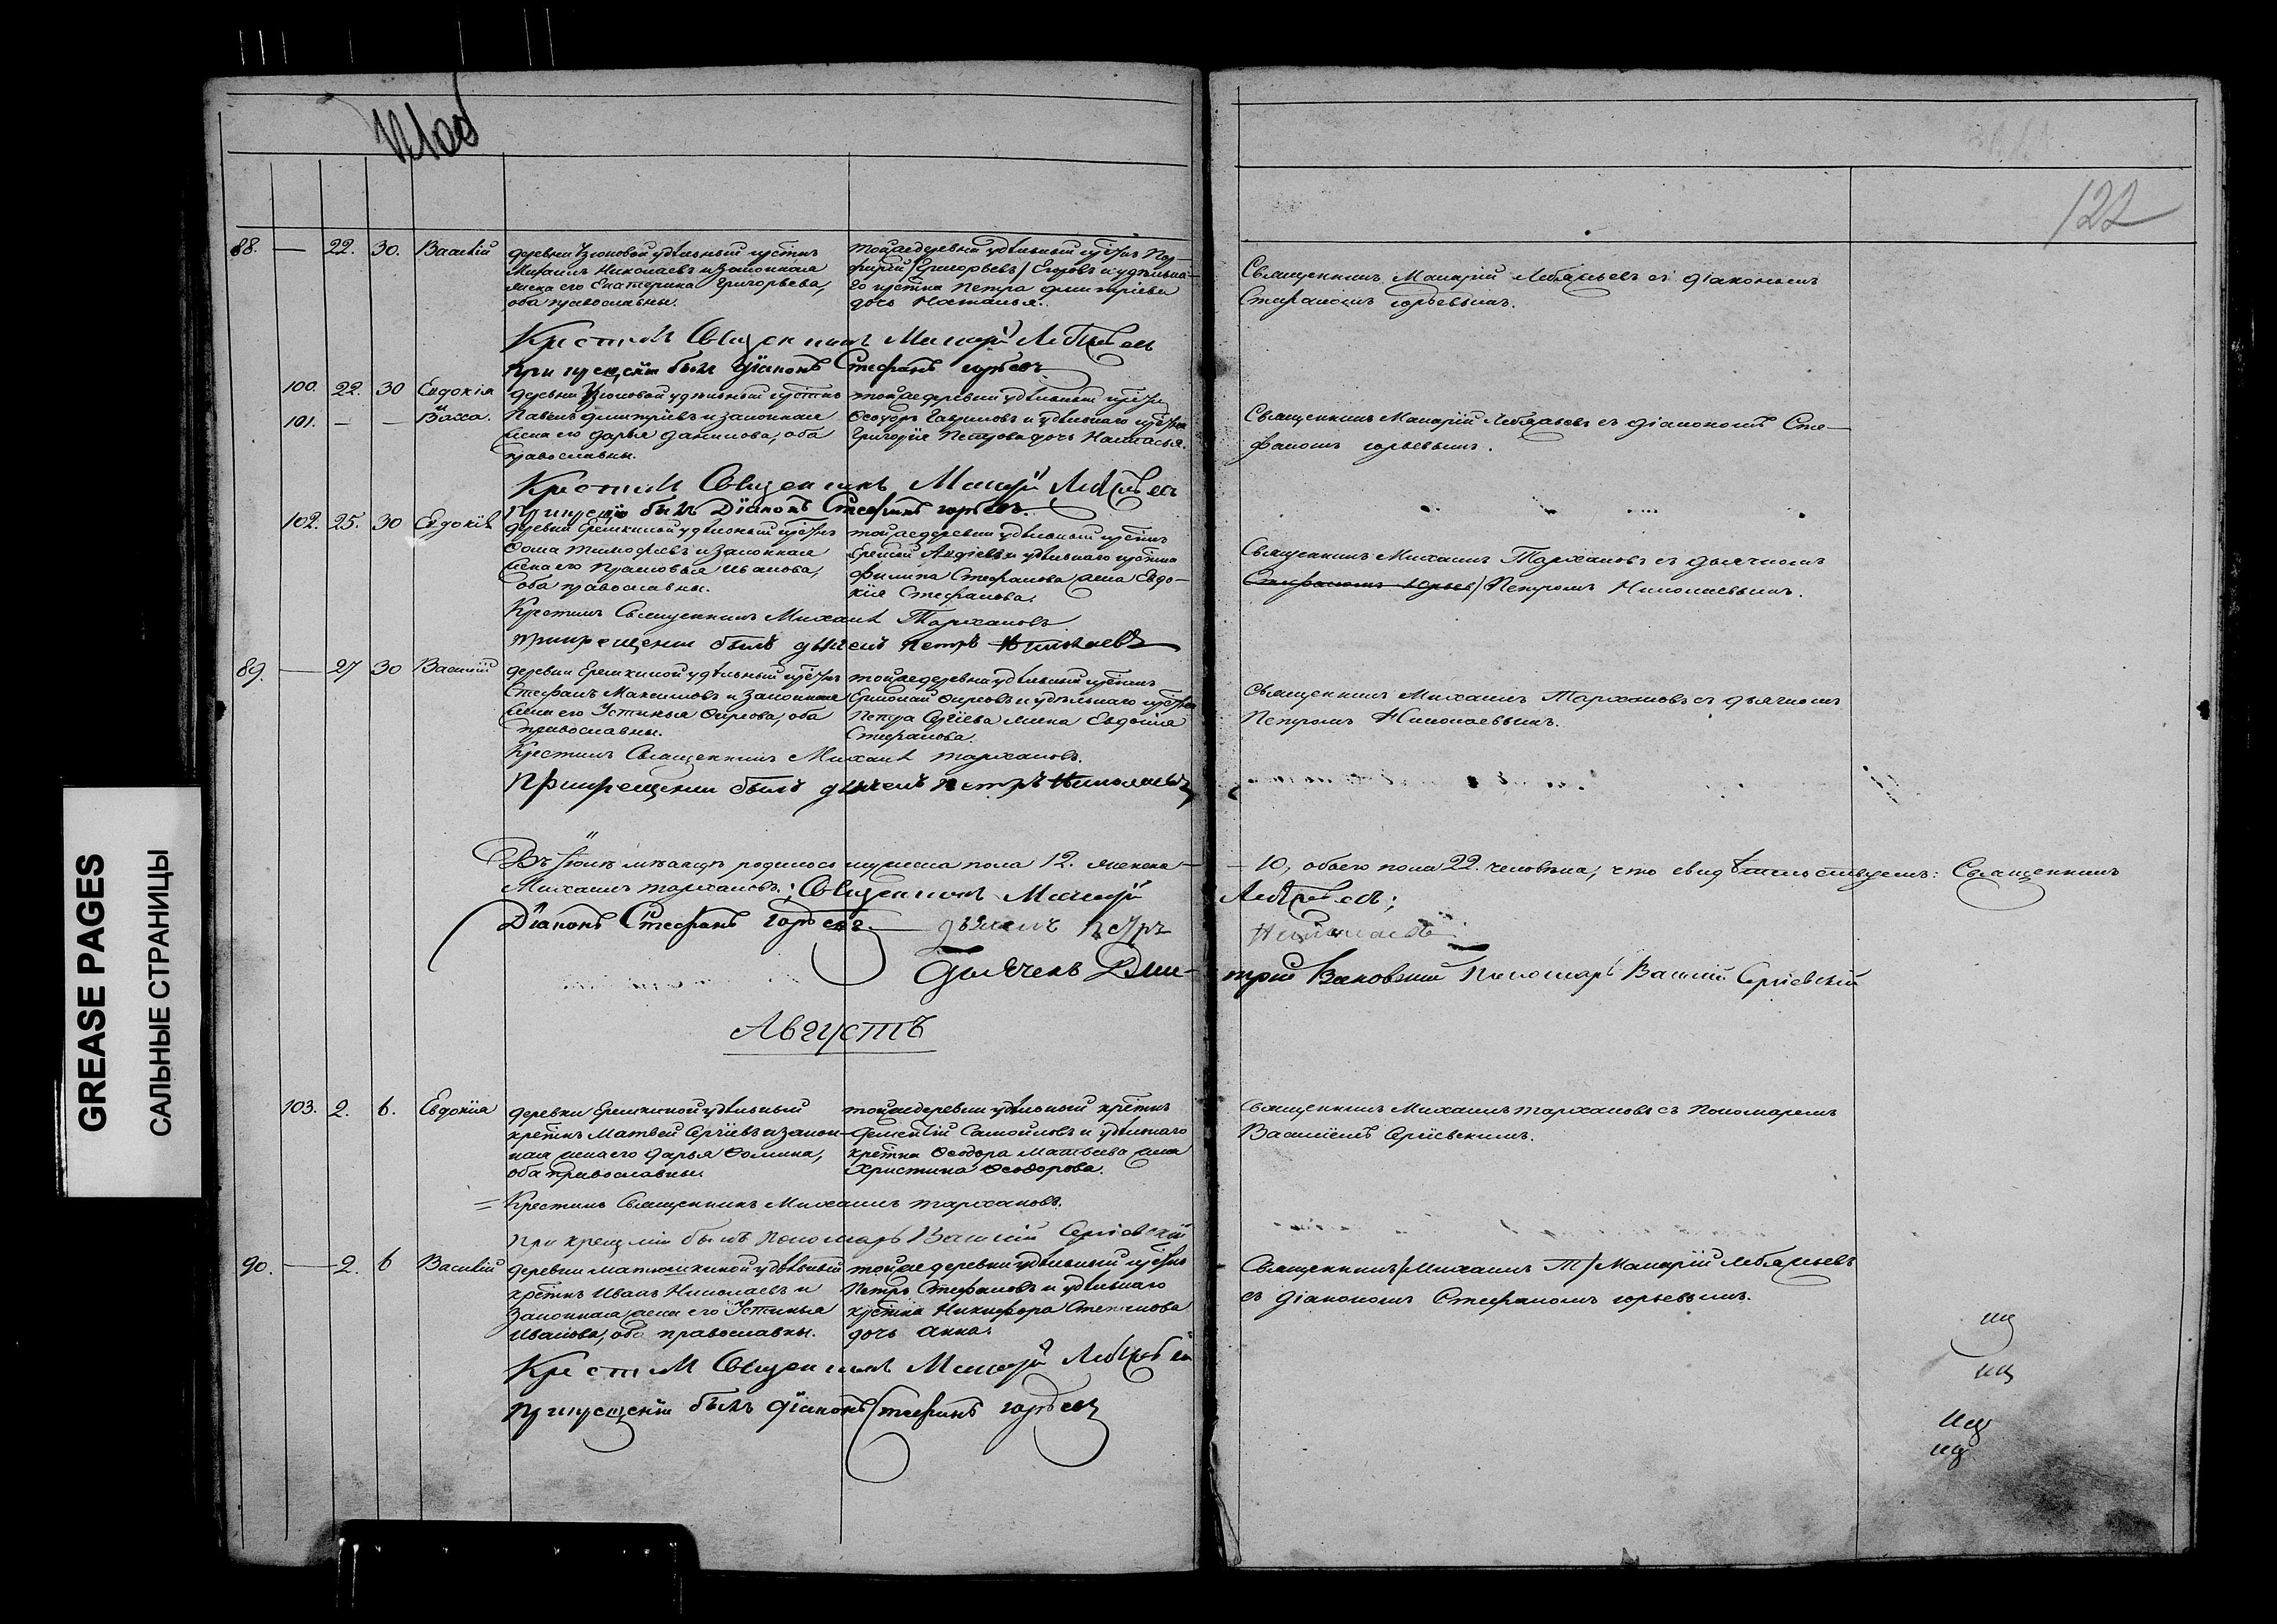 122
88. — 22. 30. Василій
деревни Узюковой удѣльный крстнъ
Михаилъ Николаевъ и законная
жена его Екатерина Григорьева,
оба православны.
тойже деревни удѣльный
Егоровъ и удѣльна-
го крстна Петра Дмитріева
дочь Наталья.
Священникъ Макарій Лебедевъ съ діакономъ
Стефаномъ Юрьевымъ.
Крестилъ Священникъ Макарій
При крещеніи былъ діаконъ Стефанъ
100. 22. 30 Евдокія
и
101. — — Васса.
деревни Узюковой удѣльный крстнъ
Павелъ Димитріевъ и законная
жена его Дарья Данилова, оба
православны.
тойже деревни удѣльный
Ѳеодоръ Гавриловъ и удѣльнаго
Григорія Петрова дочь Настасья.
Священникъ Макарій съ діакономъ Сте-
фаномъ Юрьевымъ.
Крестилъ Священникъ Макарій
При крещеніи былъ Діаконъ Стефанъ
102. 25. 30 Евдокія
деревни Еремкиной удѣльный
Ѳома Тимофеевъ и законная
жена его Прасковья Иванова,
оба православны.
тойже деревни удѣльный крстнъ
и удѣльнаго крстна
Филипа Стефанова жена Евдо-
кія Стефанова.
Священникъ Михаилъ Тархановъ съ дьячкомъ
Петромъ Николаевымъ.
Крестилъ Священникъ Михаилъ Тархановъ
При крещеніи былъ дьячекъ Петръ Николаевъ
89. — 27 30 Василій
деревни Еремкиной удѣльный
Стефанъ Максимовъ и законная
жена его Устинья оба
православны.
тойже деревни удѣльный крстнъ
и удѣльнаго
Петра Сергіева жена Евдокія
Стефанова.
Священникъ Михаилъ Тархановъ съ дьячкомъ
Петромъ Николаевымъ.
Крестилъ Священникъ Михаилъ Тархановъ.
При крещеніи былъ дьячекъ Петръ Николаевъ
Въ Іюлѣ мѣсяцѣ родилось мужеска пола 12. женска — 10, обоего пола 22. человѣка, что свидѣтельствуемъ: Священникъ
Михаилъ Тархановъ; Священникъ Макарій
Діаконъ Стефанъ дьячекъ Петръ Николаевъ
Дьячекъ Дми-трій Пономарь Василій Сергіевскій
Августъ
103. 2. 6. Евдокія
деревни Еремкиной удѣльный
крстнъ Матвей Сергіевъ и закон-
ная жена его Дарья Ѳомина,
оба православны.
тойже деревни удѣльный крстнъ
Дементій Самойловъ и удѣльнаго
крстна Ѳеодора Матвѣева жена
Христина Ѳеодорова.
Священникъ Михаилъ Тархановъ съ Пономаремъ
Василіемъ Сергіевскимъ.
= Крестилъ Священникъ Михаилъ Тархановъ.
При крещеніи былъ Пономарь Василій Сергіевскій
90. — 2. 6 Василій
деревни Матюшкиной удѣльный
крстнъ Иванъ Николаевъ и
законная жена его Устинья
Иванова, оба православны.
тойже деревни удѣльный
Петръ Стефановъ и удѣльнаго
крстна Никифора Степанова
дочь Анна.
Священникъ /Михаилъ Т/ Макарій
съ діакономъ Стефаномъ Юрьевымъ.
Крестилъ Священникъ Макарій
При крещеніи былъ діаконъ Стефанъ
GREASE PAGES
САЛЬНЫЕ СТРАНИЦЫ